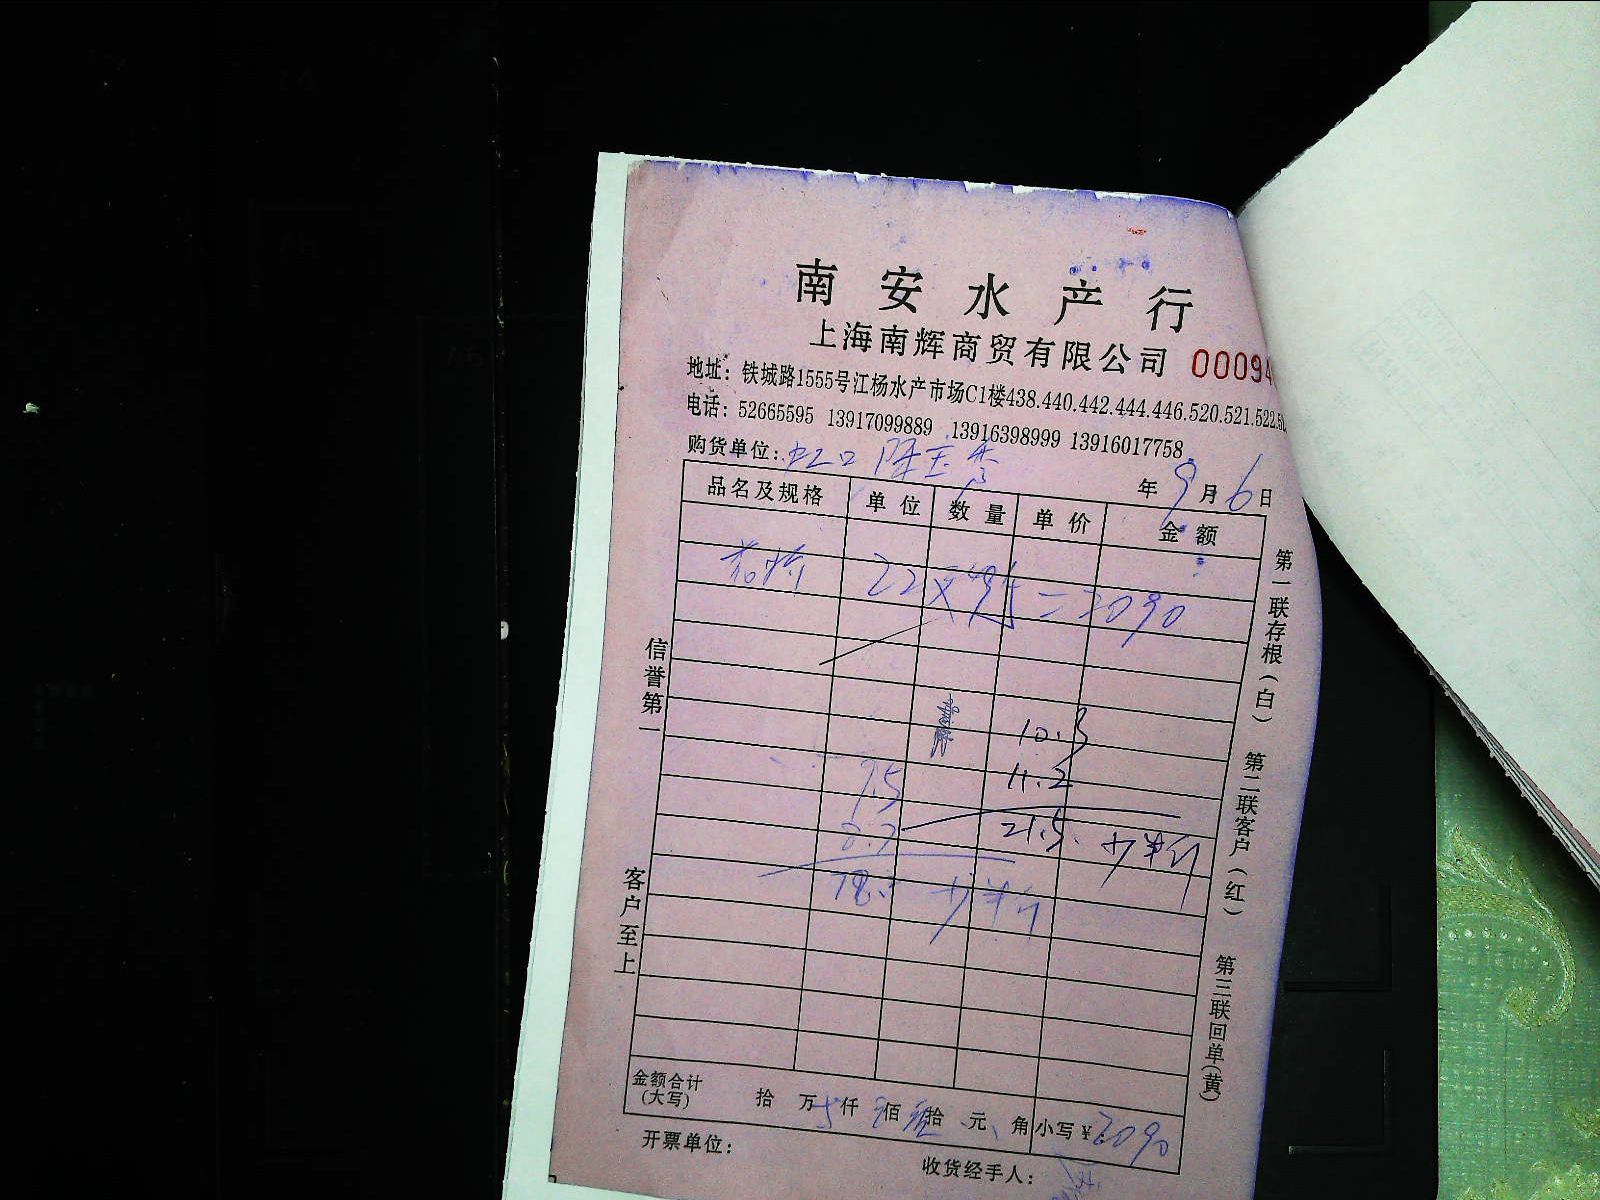 南安水产行
上海南辉商贸有限公司 00094
地址：铁城路1555号江杨水产市场C1楼438.440.442.444.446.520.521.522.5
电话：52665595 13917099889 13916398999 13916017758
购货单位：虹口 陈宝秀
年 9月 6日
品名及规格 单位 数量 单价 金额
22×95=2090
10.3
11.2
7.5
21.5 少半斤
少半斤
信誉第一
客户至上
第一联存根(白) 第二联客户(红) 第三联回单(黄)
金额合计(大写) 拾 万 仟 佰 拾 元 角 小写¥2090
开票单位：
收货经手人：